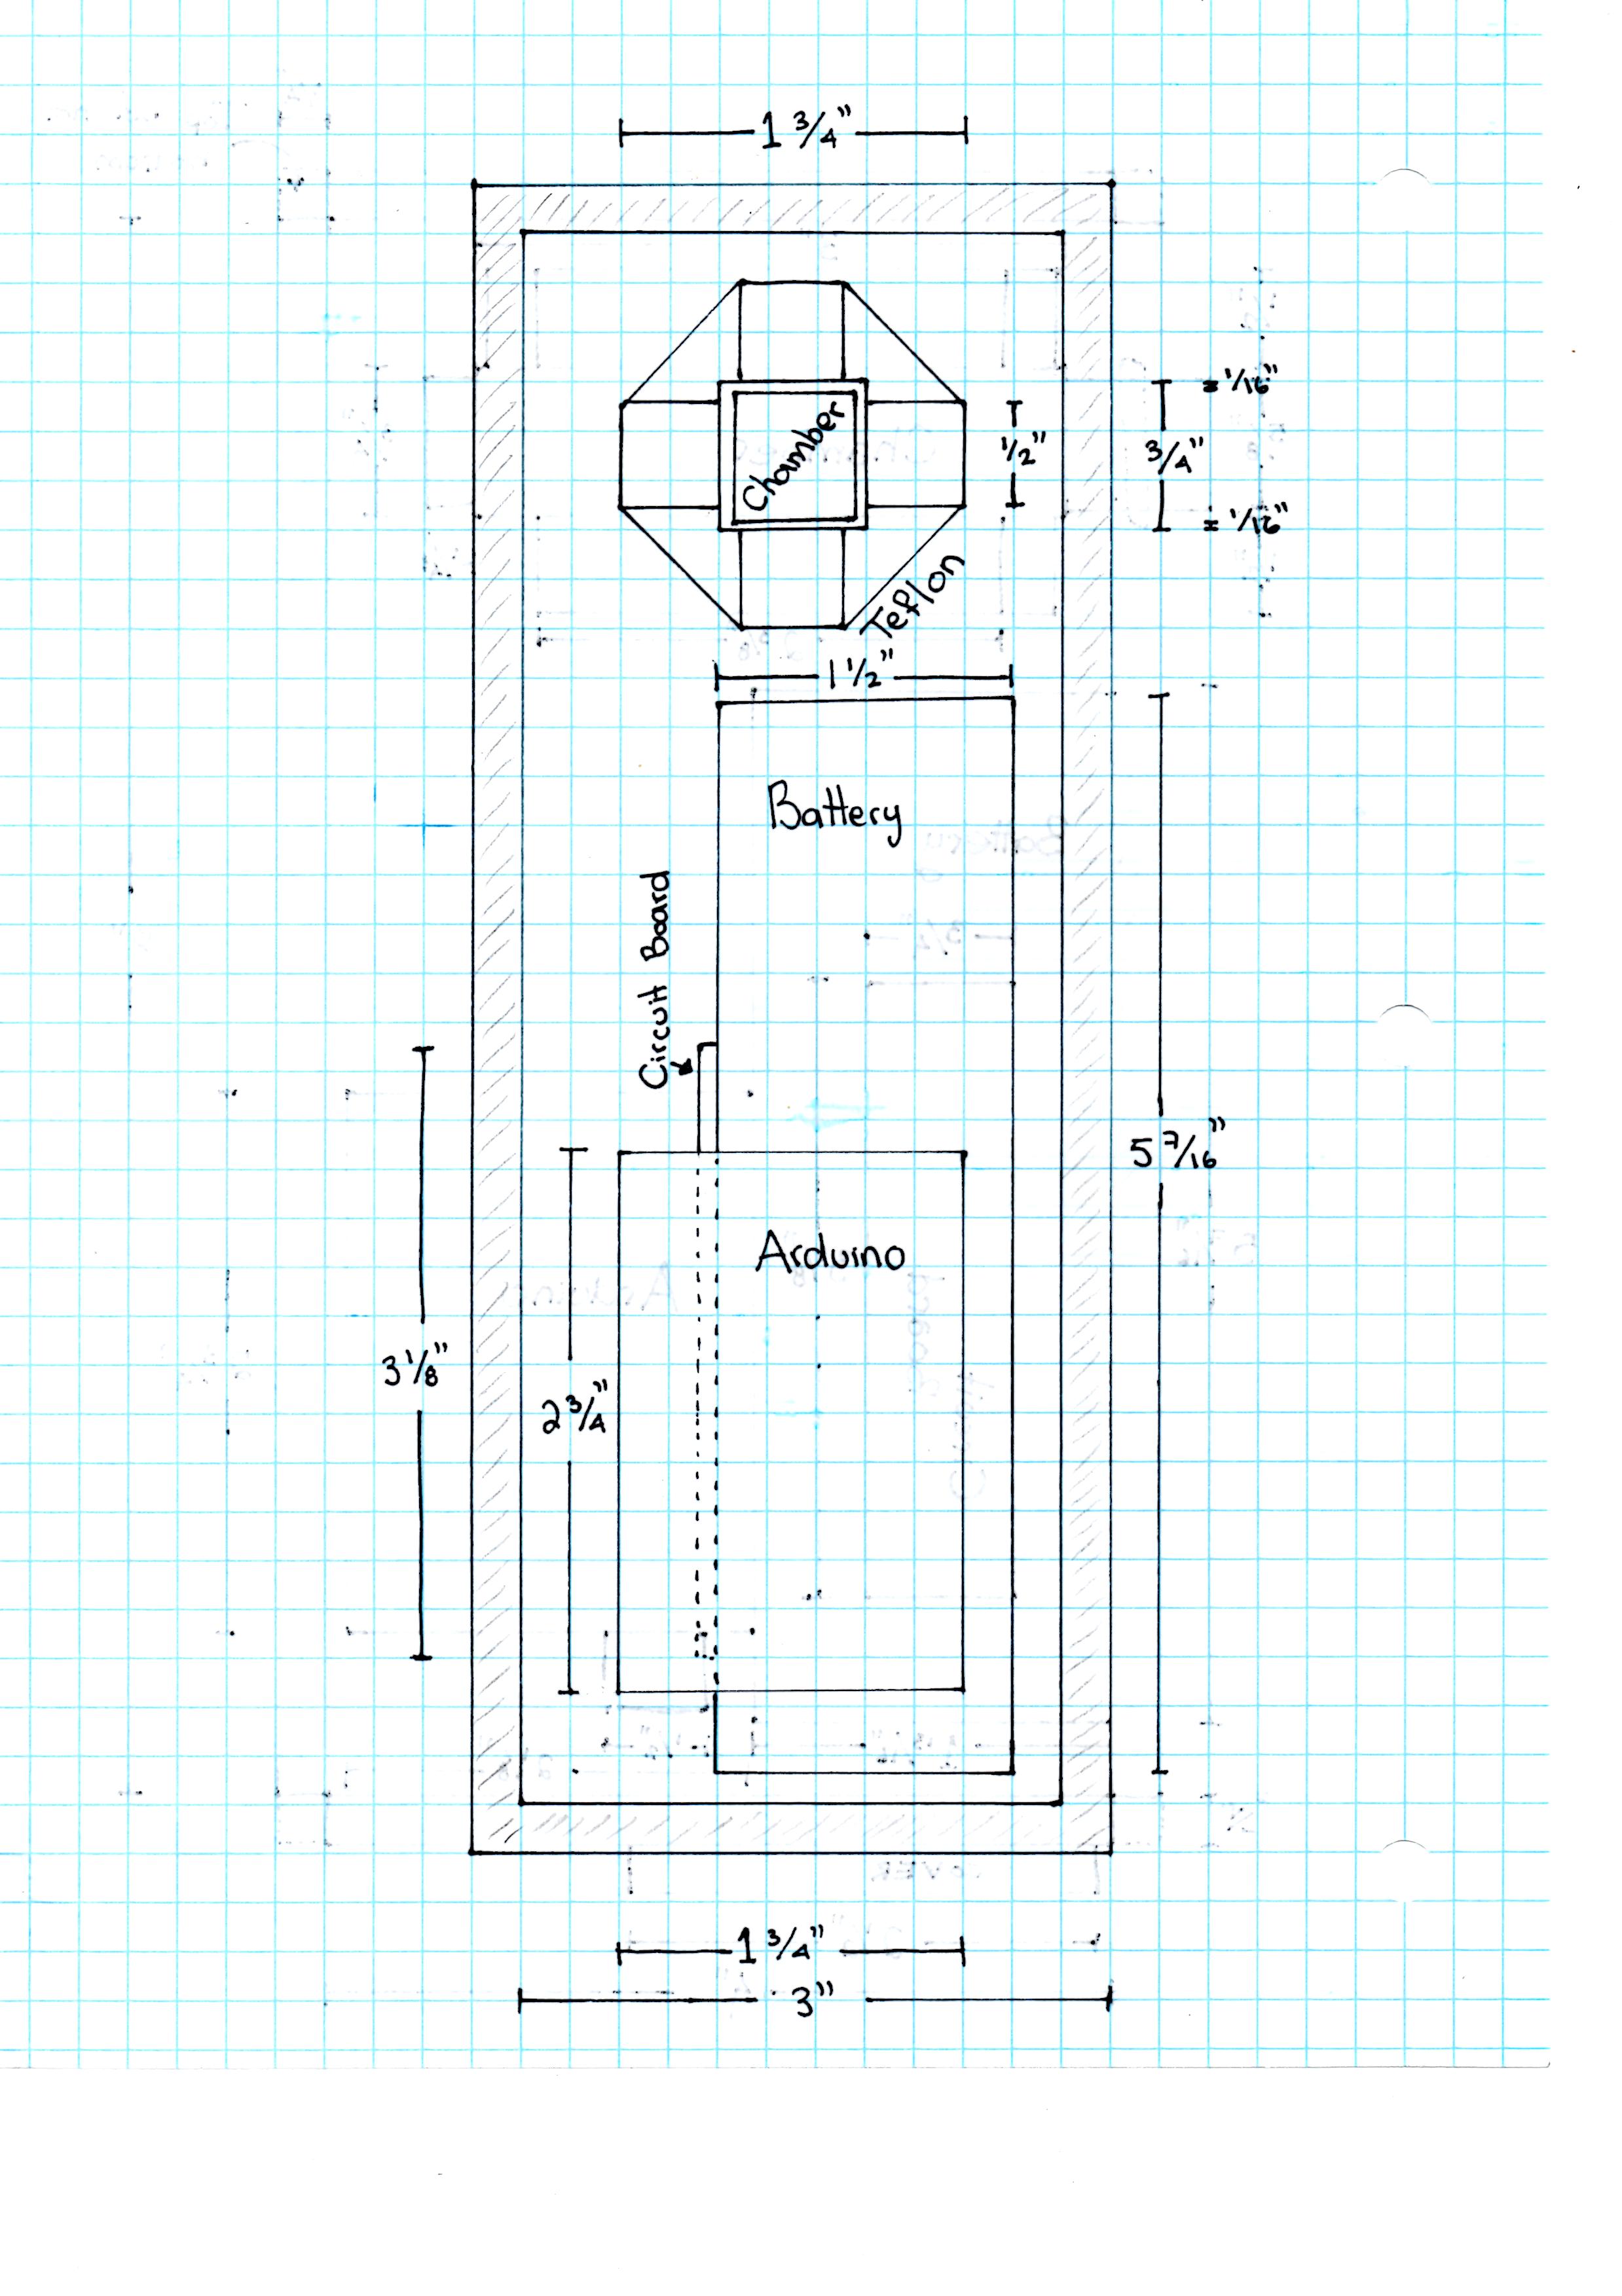 1 3/4"
= 1/16"
Chamber
1/2"
3/4"
= 1/16"
Teflon
1 1/2"
Battery
Circuit Board
5 7/16"
Arduino
3 1/8"
2 3/4"
1 3/4"
3"